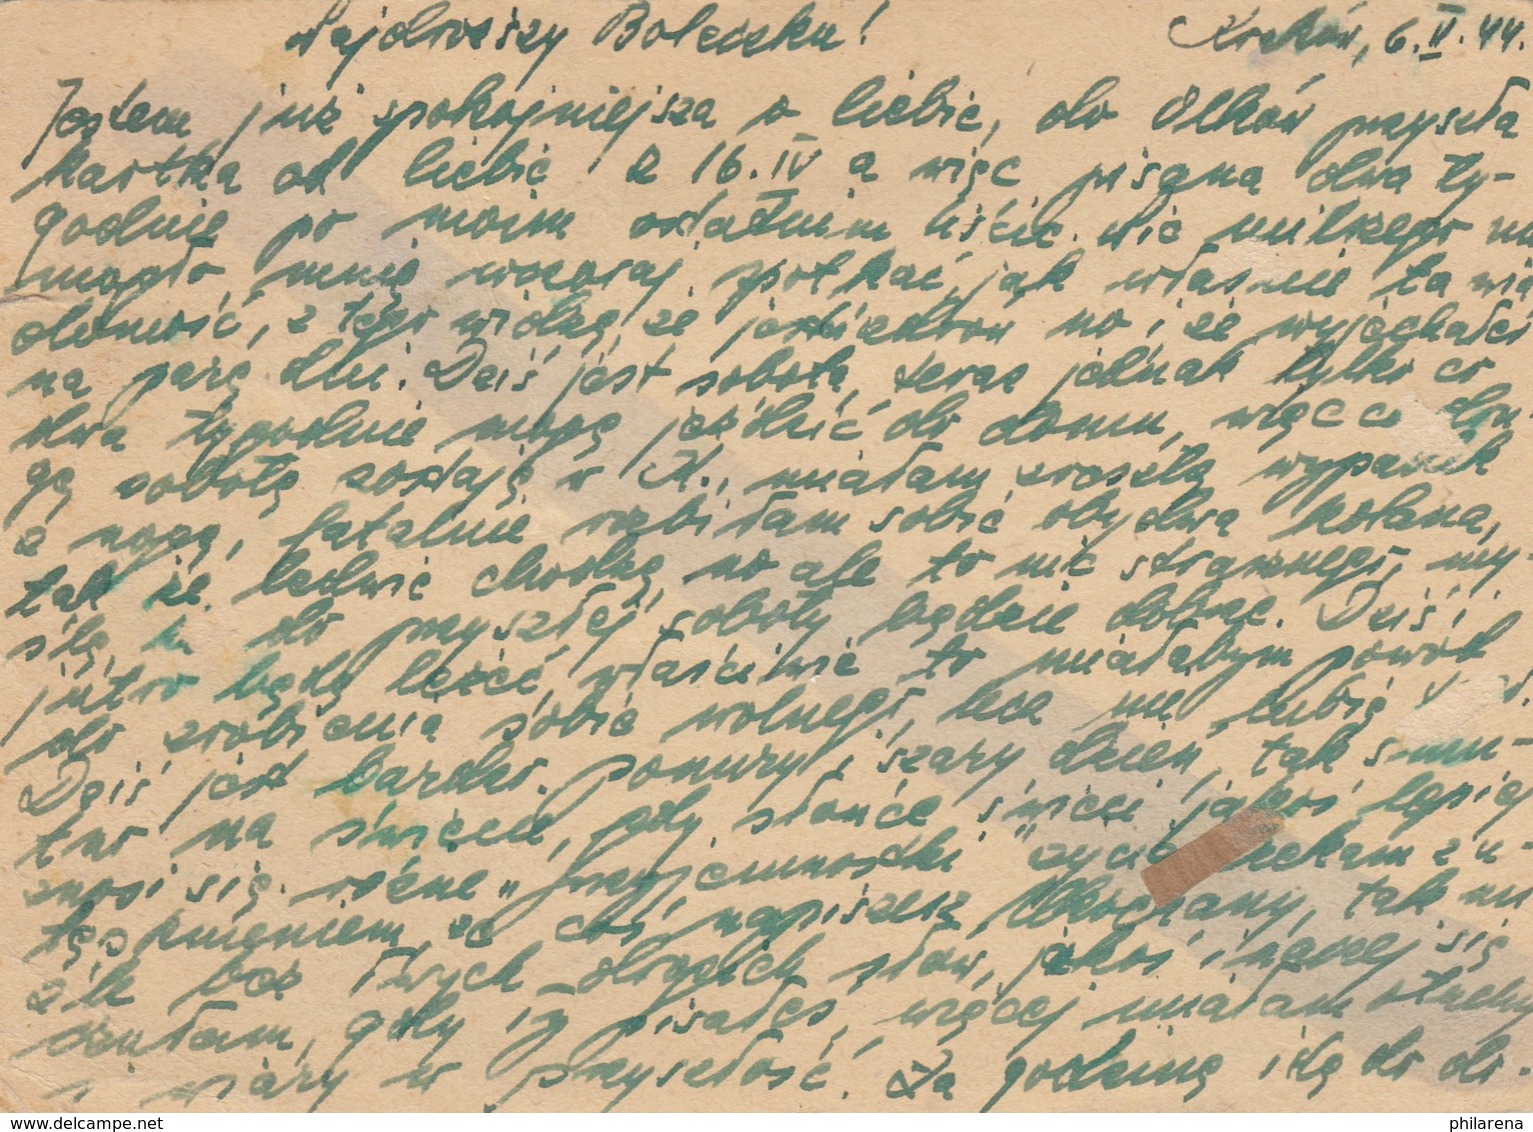 Najdroższy Boleczku! Kraków, 6.V.44.
Jestem już spokojniejsza o Ciebie, do Olków przyszła
kartka od Ciebie z 16.IV a więc pisana dwa ty-
godnie po moim ostatnim liście. Nic milszego nie
mogło mnie wczoraj spotkać, jak właśnie ta wia
domość, z tego widzę, że jesteś zdrów no i że wyjechałeś
na parę dni. Dziś jest sobota, teraz jednak tylko co
dwa tygodnie mogę jeździć do domu, więc co dru
gą sobotę zostaję w K., miałam zresztą wypadek
z nogą, fatalnie rozbiłam sobie obydwa kolana,
tak że ledwie chodzę, no ale to nic strasznego, my-
ślę, że do przyszłej soboty będzie dobrze. Dziś i
jutro będę leżeć, właściwie to miałabym powód
do zrobienia sobie wolnego, lecz nie lubię
Dziś jest bardzo ponury i szary dzień, tak smu-
tno na świecie, gdy słońce świeci jakoś lepiej
znosi się różne „przyjemnostki" życia. Czekam z u-
tęsknieniem, że coś napiszesz, Ukochany, tak mi
źle bez Twych drogich słów, jakoś inaczej się
czułam, gdy Ty pisałeś, więcej miałam otuchy
i wiary w przyszłość. Za godzinę idę do do-
philarena